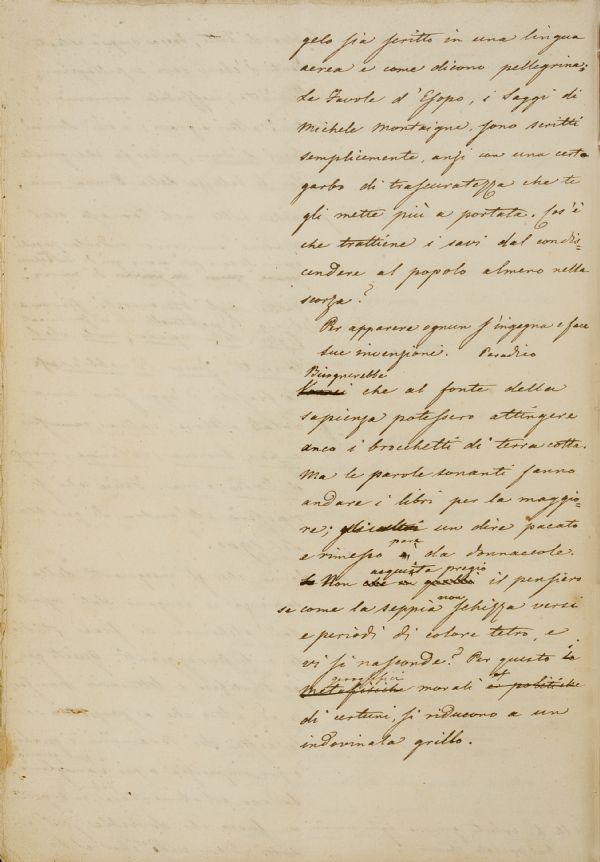 gelo sia scritto in una lingua
aerea e come dicono pellegrina;
Le Favole d'Esopo, i Saggi di
Michele Montaigne, sono scritti
semplicemente, anzi con una certo
garbo di trascuratezza che te
gli mette più a portata. Cos'è
che trattiene i savi dal condis=
cendere al popolo almeno nella
scorza?
Per apparere ognun s'ingegna e face
sue invenzioni. Paradiso
Bisognerebbe
Vorrei che al fonte della
sapienza potessero attingere
anco i brocchetti di terra cotta.
Ma le parole sonanti fanno
andare i libri per la maggio=
re; un dire pacato
pare
e rimesso è da donnaccole.
acquista pregio
Non che il pensiero
non
se come la seppia schizza versi
e periodi di colore tetro, e
vi si nasconde? Per questo le
metafisiche morali e politiche
di certuni, si riducono a un
indovinala grillo.